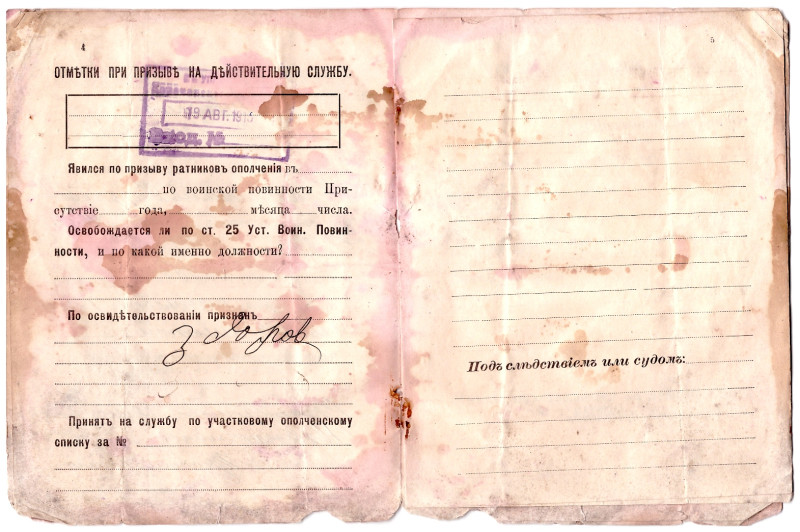 4
ОТМѢТКИ ПРИ ПРИЗЫВѢ НА ДѢЙСТВИТЕЛЬНУЮ СЛУЖБУ.
19 АВГ. 191
Вход. №
Явился по призыву ратниковъ ополченія въ
по воинской повинности При-
сутствіе года, мѣсяца числа.
Освобождается ли по ст. 25 Уст. Воин. Повин-
ности, и по какой именно должности?
По освидѣтельствованіи признанъ
здоров
Принятъ на службу по участковому ополченскому
списку за №
5
Подъ слѣдствіемъ или судомъ: